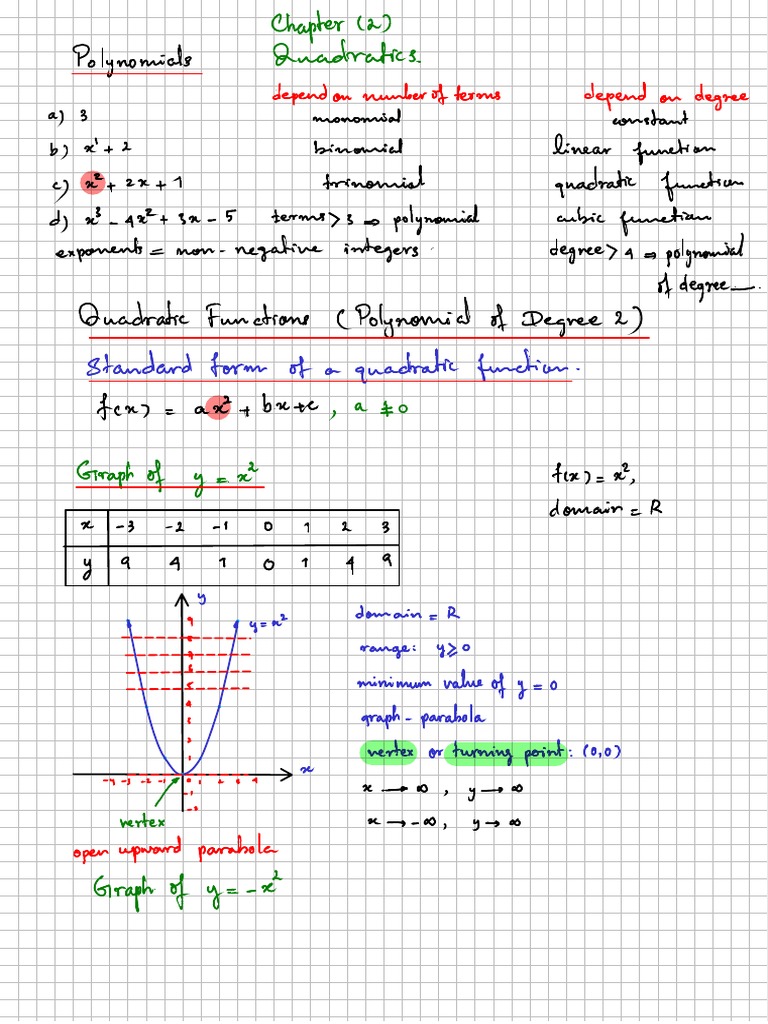 Chapter (2)
Polynomials Quadratics.
depend on number of terms depend on degree
a) 3 monomial constant
b) x¹ + 2 binomial linear function
c) x² + 2x + 1 trinomial quadratic function
d) x³ - 4x² + 3x - 5 terms > 3 ⇒ polynomial cubic function
exponents = non-negative integers. degree > 4 ⇒ polynomial
of degree __.
Quadratic Functions (Polynomial of Degree 2)
Standard form of a quadratic function.
f(x) = ax² + bx + c, a ≠ 0
Graph of y = x²
f(x) = x²,
domain = R
x -3 -2 -1 0 1 2 3
y 9 4 1 0 1 4 9
y
y = x²
9
8
7
6
5
4
3
2
1
-4 -3 -2 -1 0 1 2 3 4
x
-1
-2
vertex
domain = R
range: y ⩾ 0
minimum value of y = 0
graph - parabola
vertex or turning point: (0,0)
x → ∞, y → ∞
x → -∞, y → ∞
open upward parabola
Graph of y = -x²